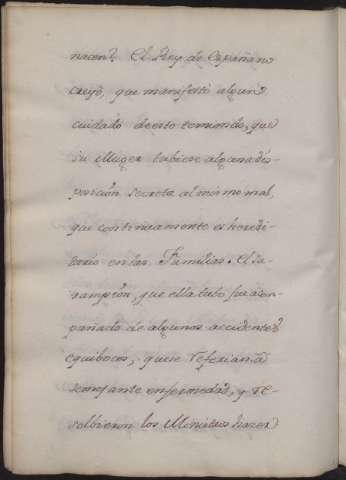 nacen? El Rey de España no
creyó, que manifestó algun
cuidado de esto temiendo, que
su Muger tubiese alguna dis-
posicion secreta al mismo mal,
que continuamente es heredi-
tario en las Familias. El sa-
rampion, que ella tubo fue acom-
pañado de algunos accidentes
equibocos, que se referian â
semejante enfermedad, y re-
solbieron los Ministros hazer